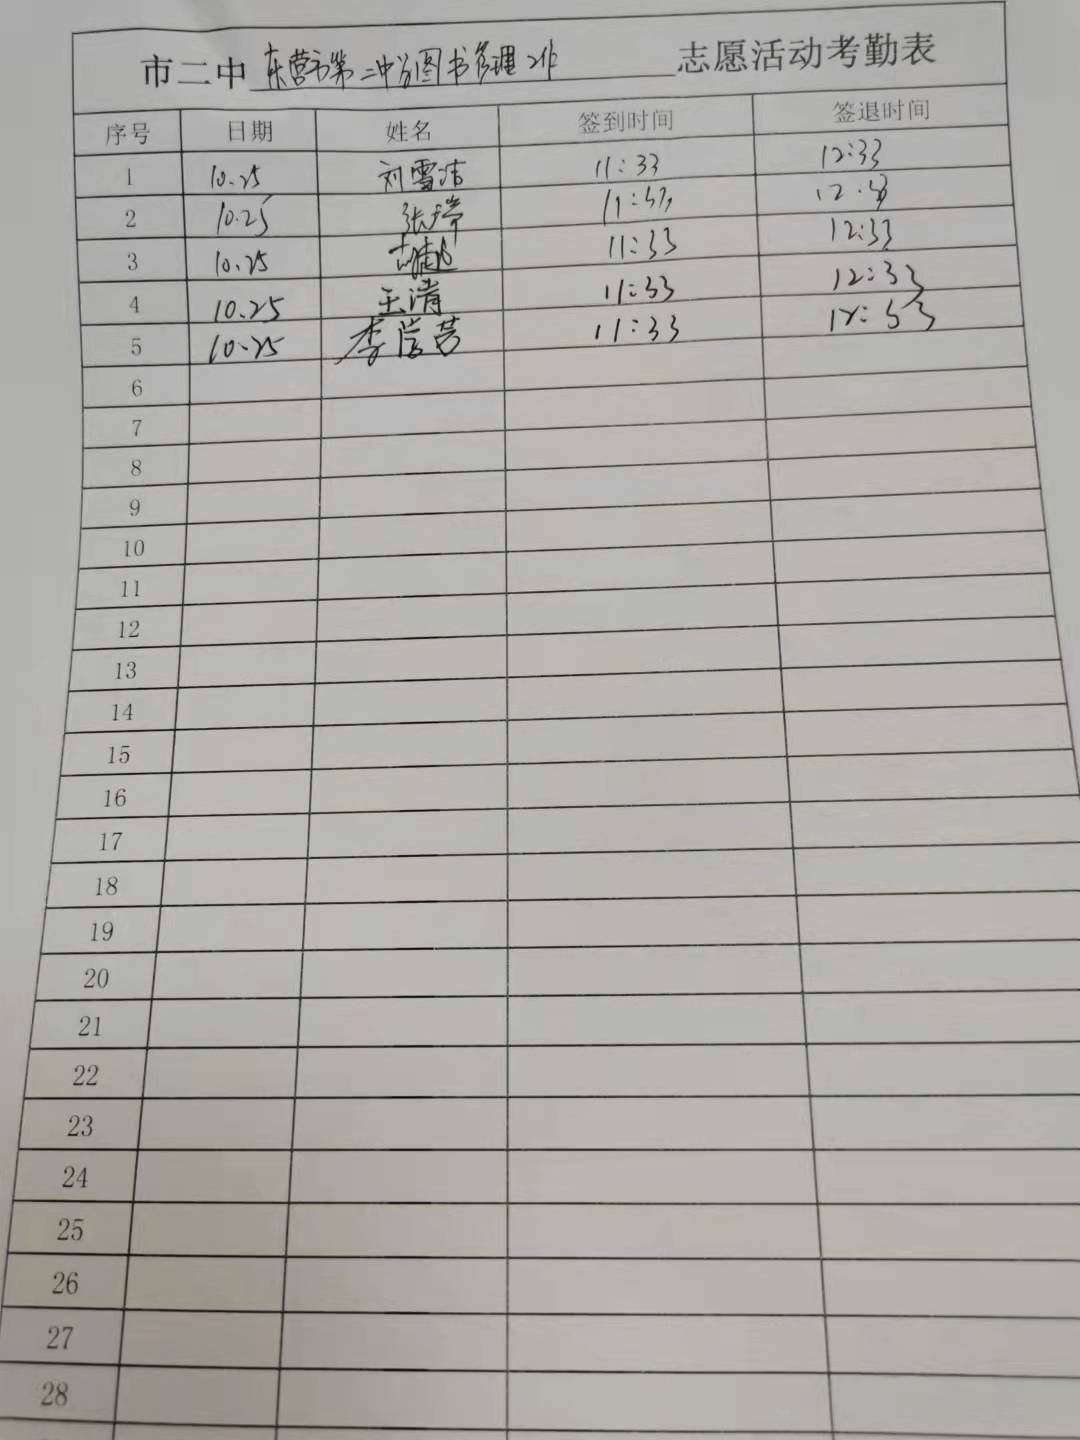 市二中 东营市第二中学图书管理工作 志愿活动考勤表
序号 日期 姓名 签到时间 签退时间
1 10.25 刘雪洁 11:33 12:33
2 10.25 张 11:33 12:33
3 10.25 11:33 12:33
4 10.25 王清 11:33 12:33
5 10.25 李 11:33 12:53
6
7
8
9
10
11
12
13
14
15
16
17
18
19
20
21
22
23
24
25
26
27
28